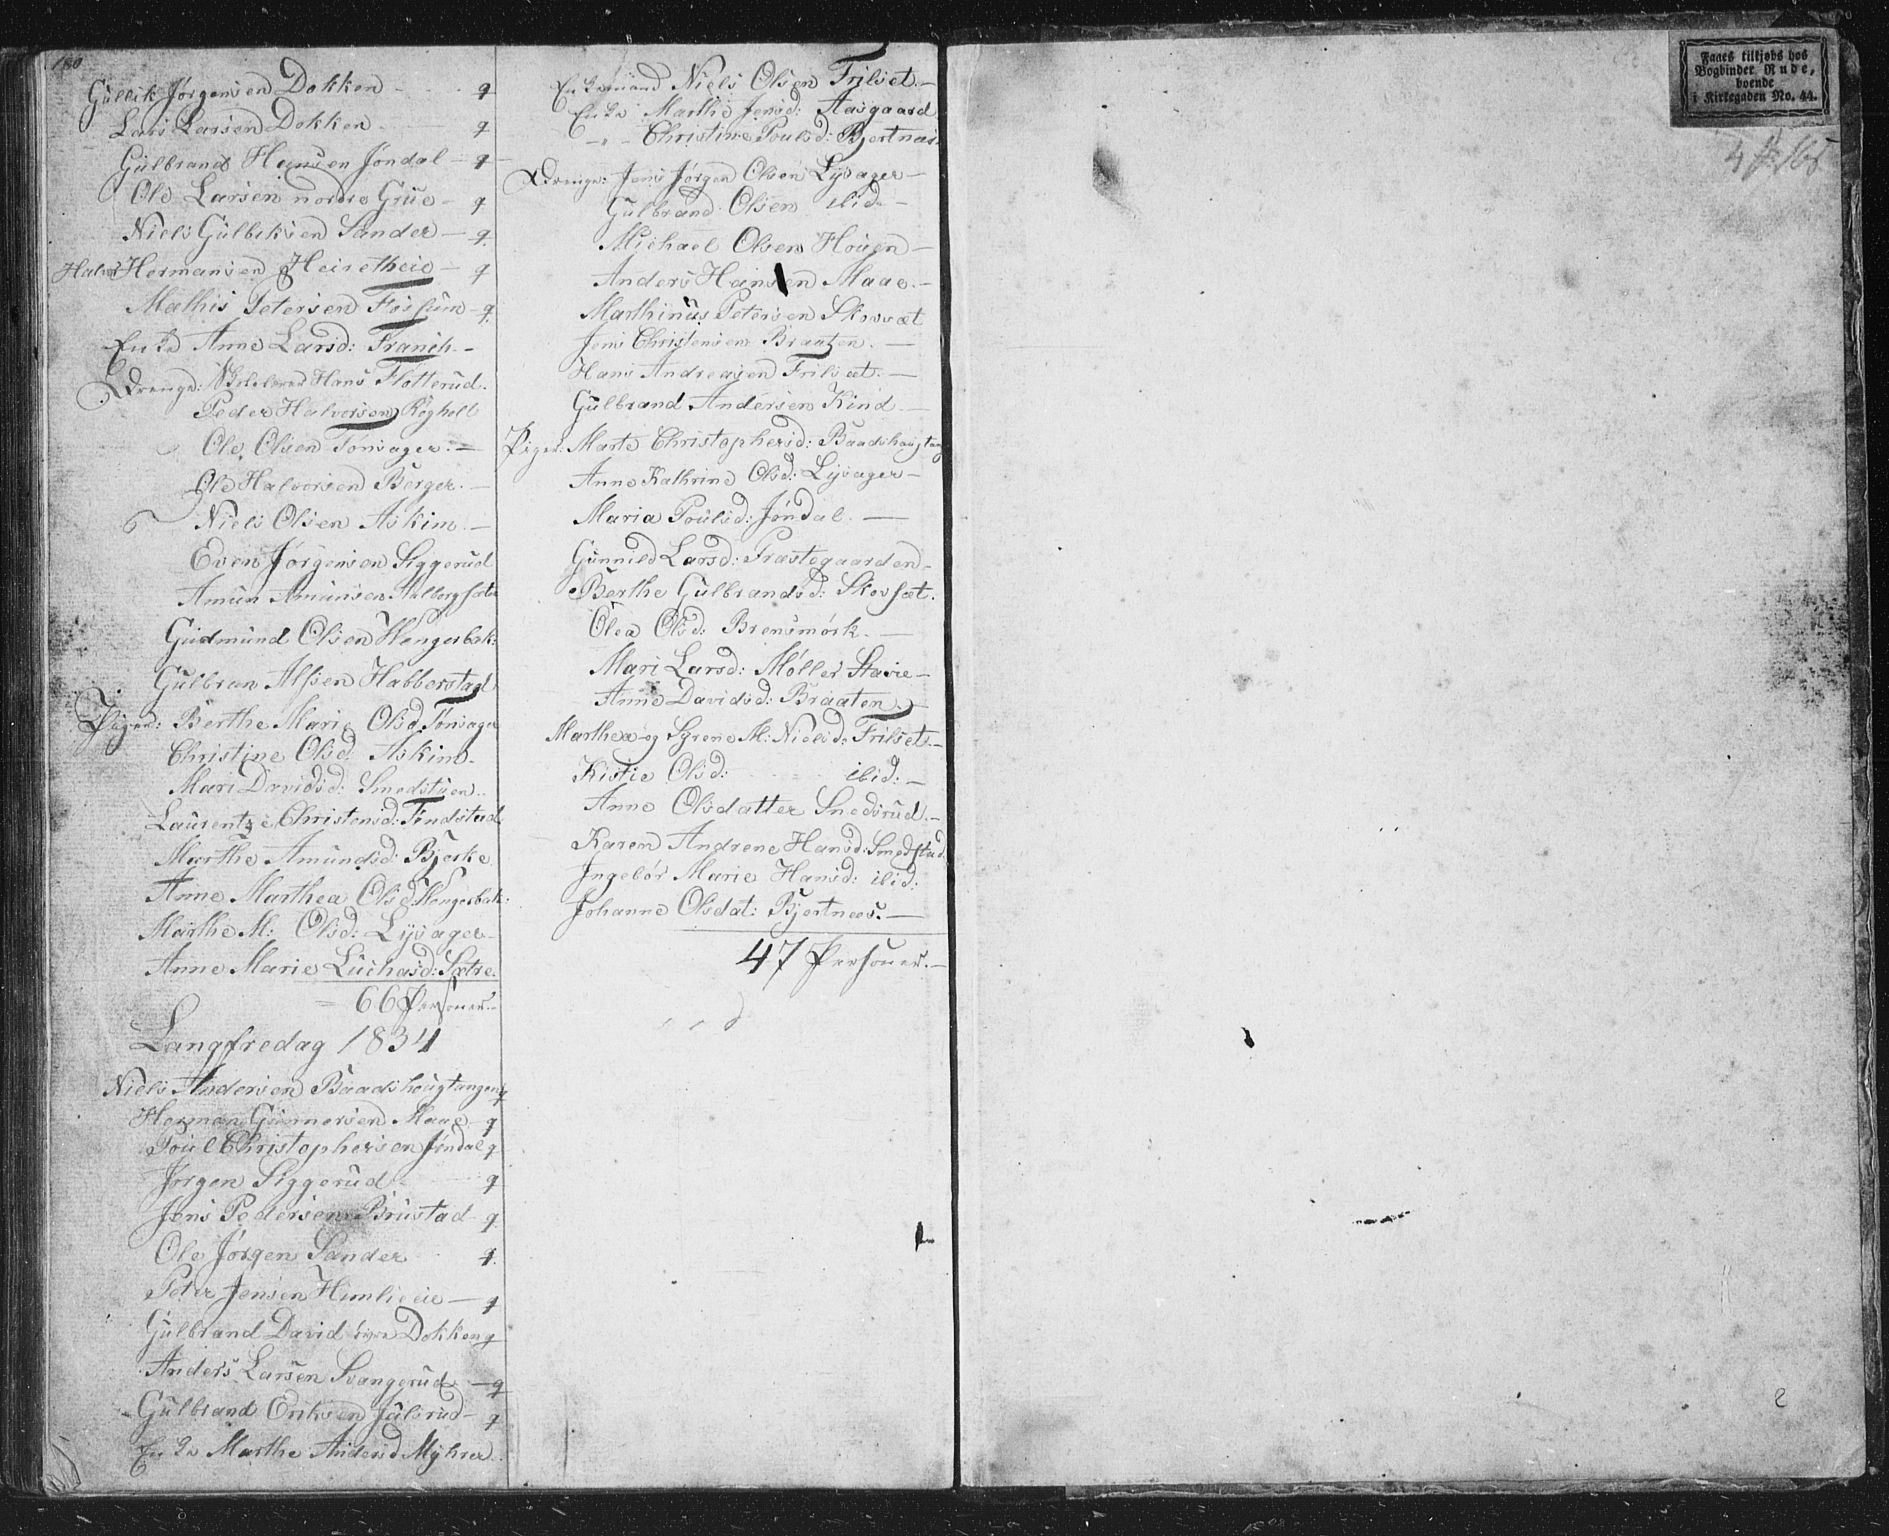 180
Gulbik Jørgensen Dokken - q
Lars Larsen Dokken - q
Gulbrand Hansen Jøndal - q
Ole Larsen nordre Grue - q
Niels Gulbiksen Sander - q
Halvor Hermansen Heieretheie - q
Mathis Petersen Fossum - q
Enke Anne Larsd: Franch -
Drenge: Skolelærer Hans Flotterud.
Peder Halvorsen Røgholt
Ole Olsen Tønsager. -
Ole Halvorsen Berger. -
Niels Olsen Askim. -
Even Jørgensen Siggerud
Amun Amunsen Aalborgsæter
Gudmund Olsen Hengerbak:
Gulbran Alfsen Habberstad
Piger: Berthe Marie Olsd. Tønsager
Christine Olsd. Askim.
Mari Davidsd: Smedstuen.
Laurentze Christensd: Tendstad
Marthe Amundsd: Bjerke
Anne Marthea Olsd: Hengerbak:
Marthe M: Olsd: Lysager -
Anne Marie Luchasd: Sætre.
= 66 Personer. -
Langfredag 1834
Niels Andersen Baadshougtangen q
Herman Gunnersen Maae - q
Poul Christophersen Jøndal q
Jørgen Siggerud - q
Jens Pedersen Brustad - q
Ole Jørgen Sander q.
Peter Jensen Himlieeie - q
Gulbrand David Dokken q
Anders Larsen Svangerud - q
Gulbrand Eriksen Julsrud - q
Enke Marthe Andersd Myhrer.
Enkemand Niels Olsen Frilset. -
Enke Marthe Jensd: Aasgaard
- " - Christine Poulsd: Bjertnæs
Drenge: Jens Jørgen Olsen Lysager -
Gulbrand Olsen ibid -
Michael Olsen Houen -
Anders Hansen Maae. -
Marthinus Petersen Skovsæt
Jens Christensen Braaten. -
Hans Andreasen Frilset. -
Gulbrand Andersen Kind -
Piger: Marte Christophersd: Baadshougtang
Anne Kathrine Olsd: Lysager -
Maria Poulsd: Jøndal. -
Gunnild Larsd: Præstegaarden -
Berthe Gulbrandsd: Skovsæt.
Olea Olsd: Brensmørk. -
Mari Larsd: Møller Stavie -
Anne Davidsd: Braaten. -
Marthea og Syrene M: Nielsd: Frilset. -
Kistie Olsd: ibid: -
Anne Olsdatter Snedsrud. -
Karen Andrene Hansd: Smedstad
Ingebor Marie Hansd: ibid:
Johanne Olsdat: Bjertnæs. -
47 Personer. -
Faaes tilkjøbs hos
Bogbinder Rude,
boende
i Kirkegaden No. 44.
2